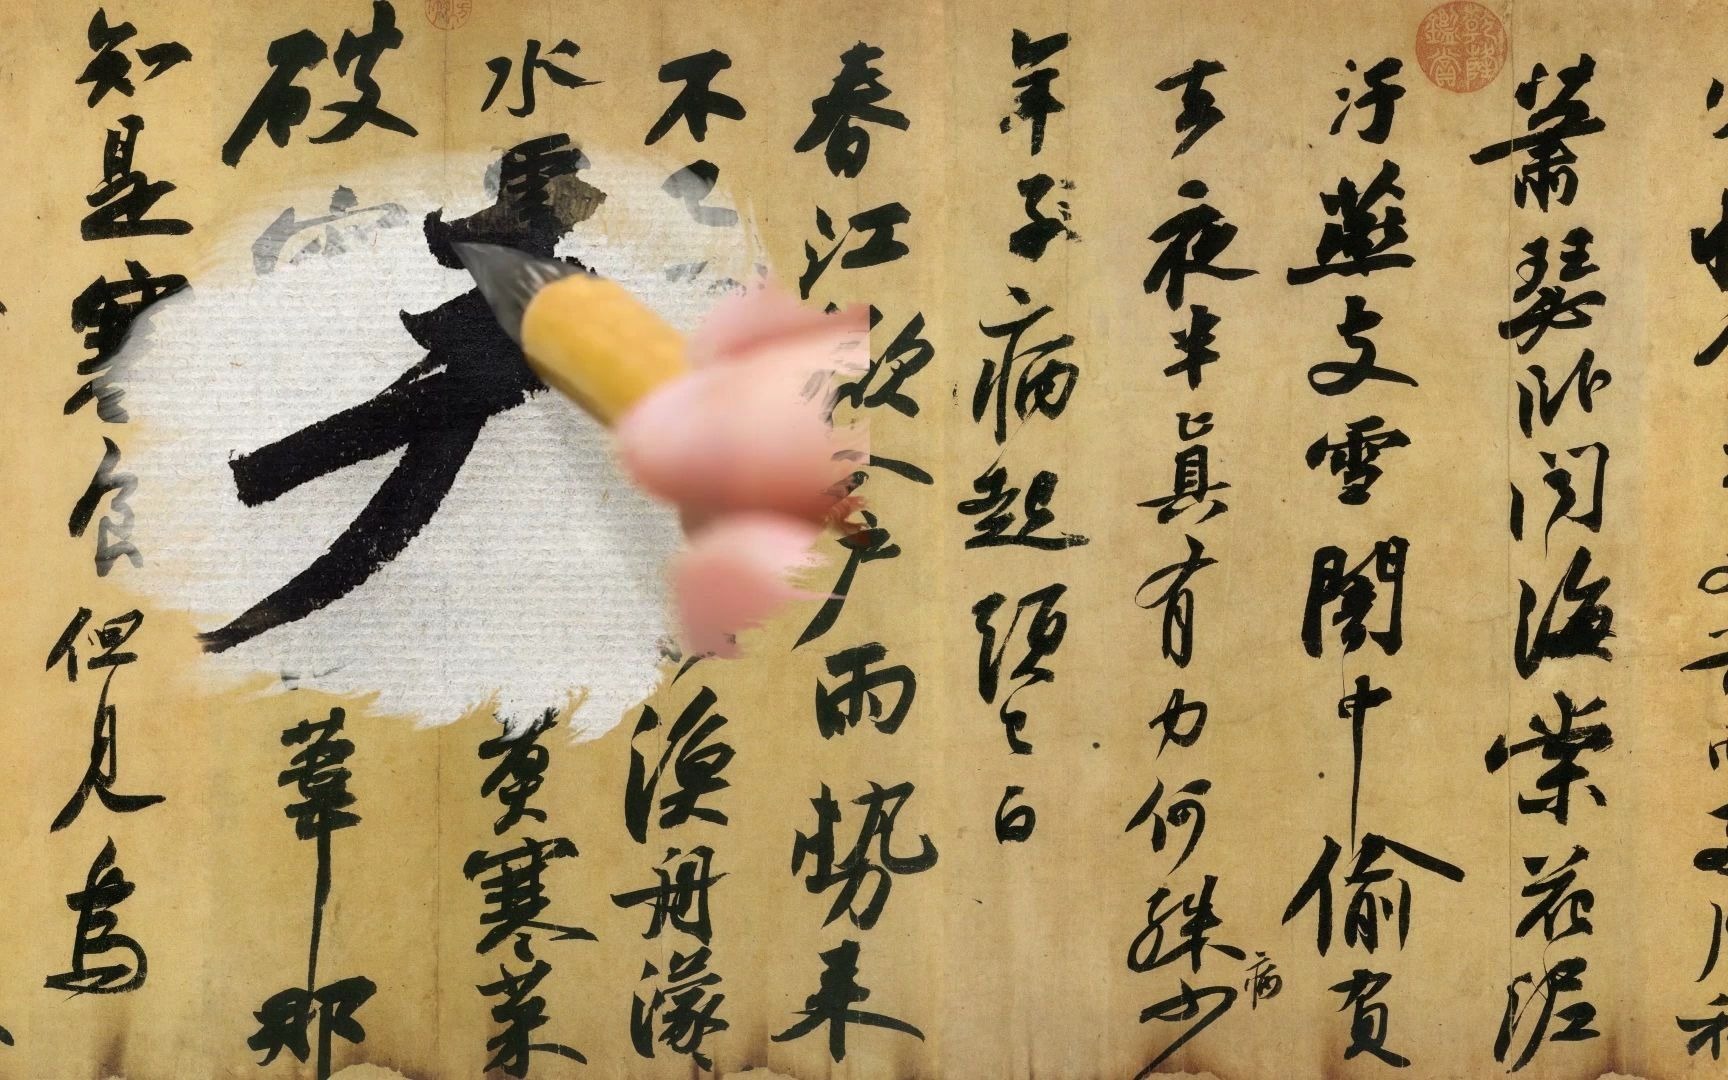 蕭瑟卧聞海棠花泥
汙燕支雪闇中偷負
去夜半真有力何殊少
病
年子病起頭已白
春江欲入户雨勢来
不已 漁舟濛
水雲 煮寒菜
破 葦那
知是寒食但見烏